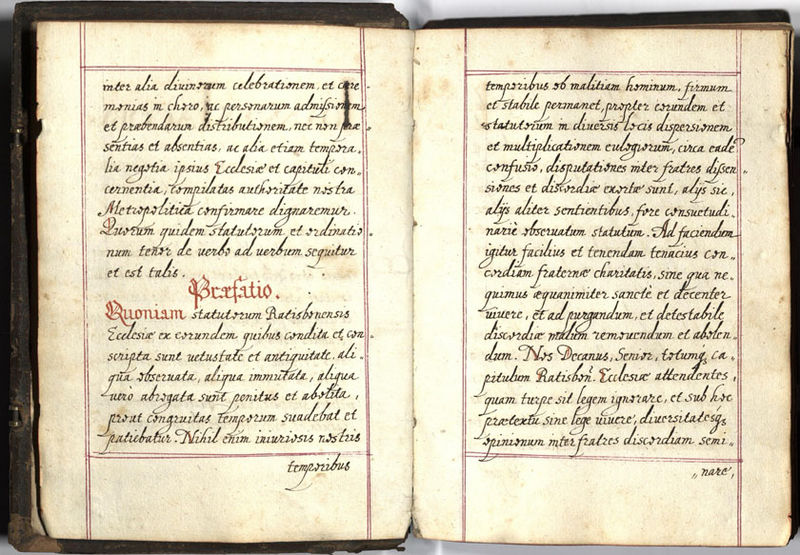 inter alia divinorum celebrationem, et cære-
monias in choro, ac personarum admissionem
et præbendarum distributionem, nec non præ
sentias et absentias, ac alia etiam tempora-
lia negotia ipsius Ecclesiæ et capituli con-
cernentia, compilatas authoritate nostra
Metropolitica confirmare dignaremur.
Quorum quidem statutorum et ordinatio-
num tenor de verbo ad verbum sequitur
et est talis.
Præfatio.
Quoniam statutorum Ratisbonensis
Ecclesiæ ex eorundem quibus condita et con-
scripta sunt vetustate et antiquitate, ali-
qua observata, aliqua immutata, aliqua
vero abrogata sunt penitus et abolita,
prout congruitas temporum suadebat et
patiebatur. Nihil enim iniuriosis nostris
temporibus
temporibus ob malitiam hominum, firmum
et stabile permanet, propter eorundem et
statutorum in diversis locis dispersionem
et multiplicationem eulogiorum, circa eadē
confusio, disputationes inter fratres dissen-
siones et discordiæ exortæ sunt, alijs sic,
alijs aliter sentientibus, fore consuetudi-
nariè observatum statutum. Ad faciendum
igitur facilius et tenendam tenacius con-
cordiam fraternæ charitatis, sine qua ne-
quimus æquanimiter sanctè et decenter
vivere, et ad purgandum, et detestabile
discordiæ malum removendum et abolen-
dum. Nos Decanus, Senior, totumq₃ ca-
pitulum Ratisbon. Ecclesiæ attendentes,
quam turpe sit legem ignorare, et sub hoc
prætextu sine lege vivere, diversitatesq₃
opinionum inter fratres discordiam semi-
nare,